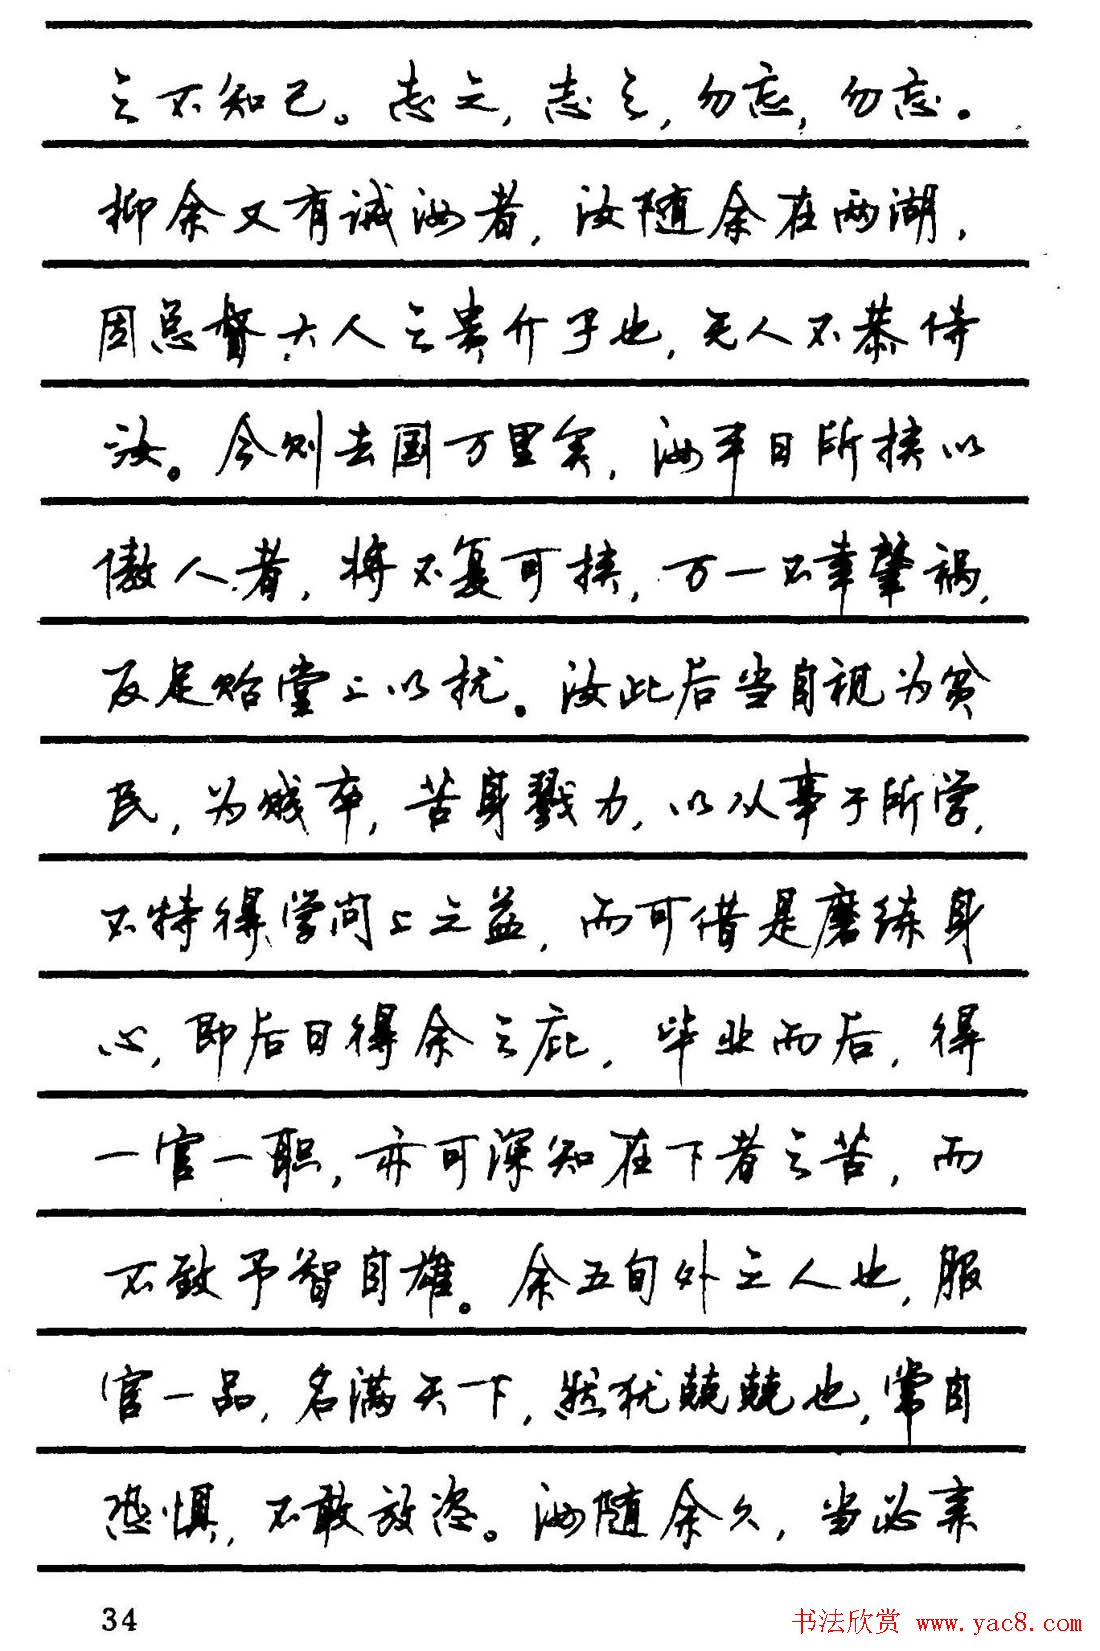 之不知己。志之，志之，勿忘，勿忘。
抑余又有诫汝者，汝随余在两湖，
因总督大人之贵介子也，无人不恭待
汝。今则去国万里矣，汝平日所挟以
傲人者，将不复可挟，万一不幸肇祸，
反足贻堂上以忧。汝此后当自视为贫
民，为贱卒，苦身戮力，以从事于所学，
不特得学问上之益，而可借是磨练身
心，即后日得余之庇，毕业而后，得
一官一职，亦可深知在下者之苦，而
不致予智自雄。余五旬外之人也，服
官一品，名满天下，然犹兢兢也，常自
恐惧，不敢放恣。汝随余久，当必亲
34
书法欣赏 www.yac8.com